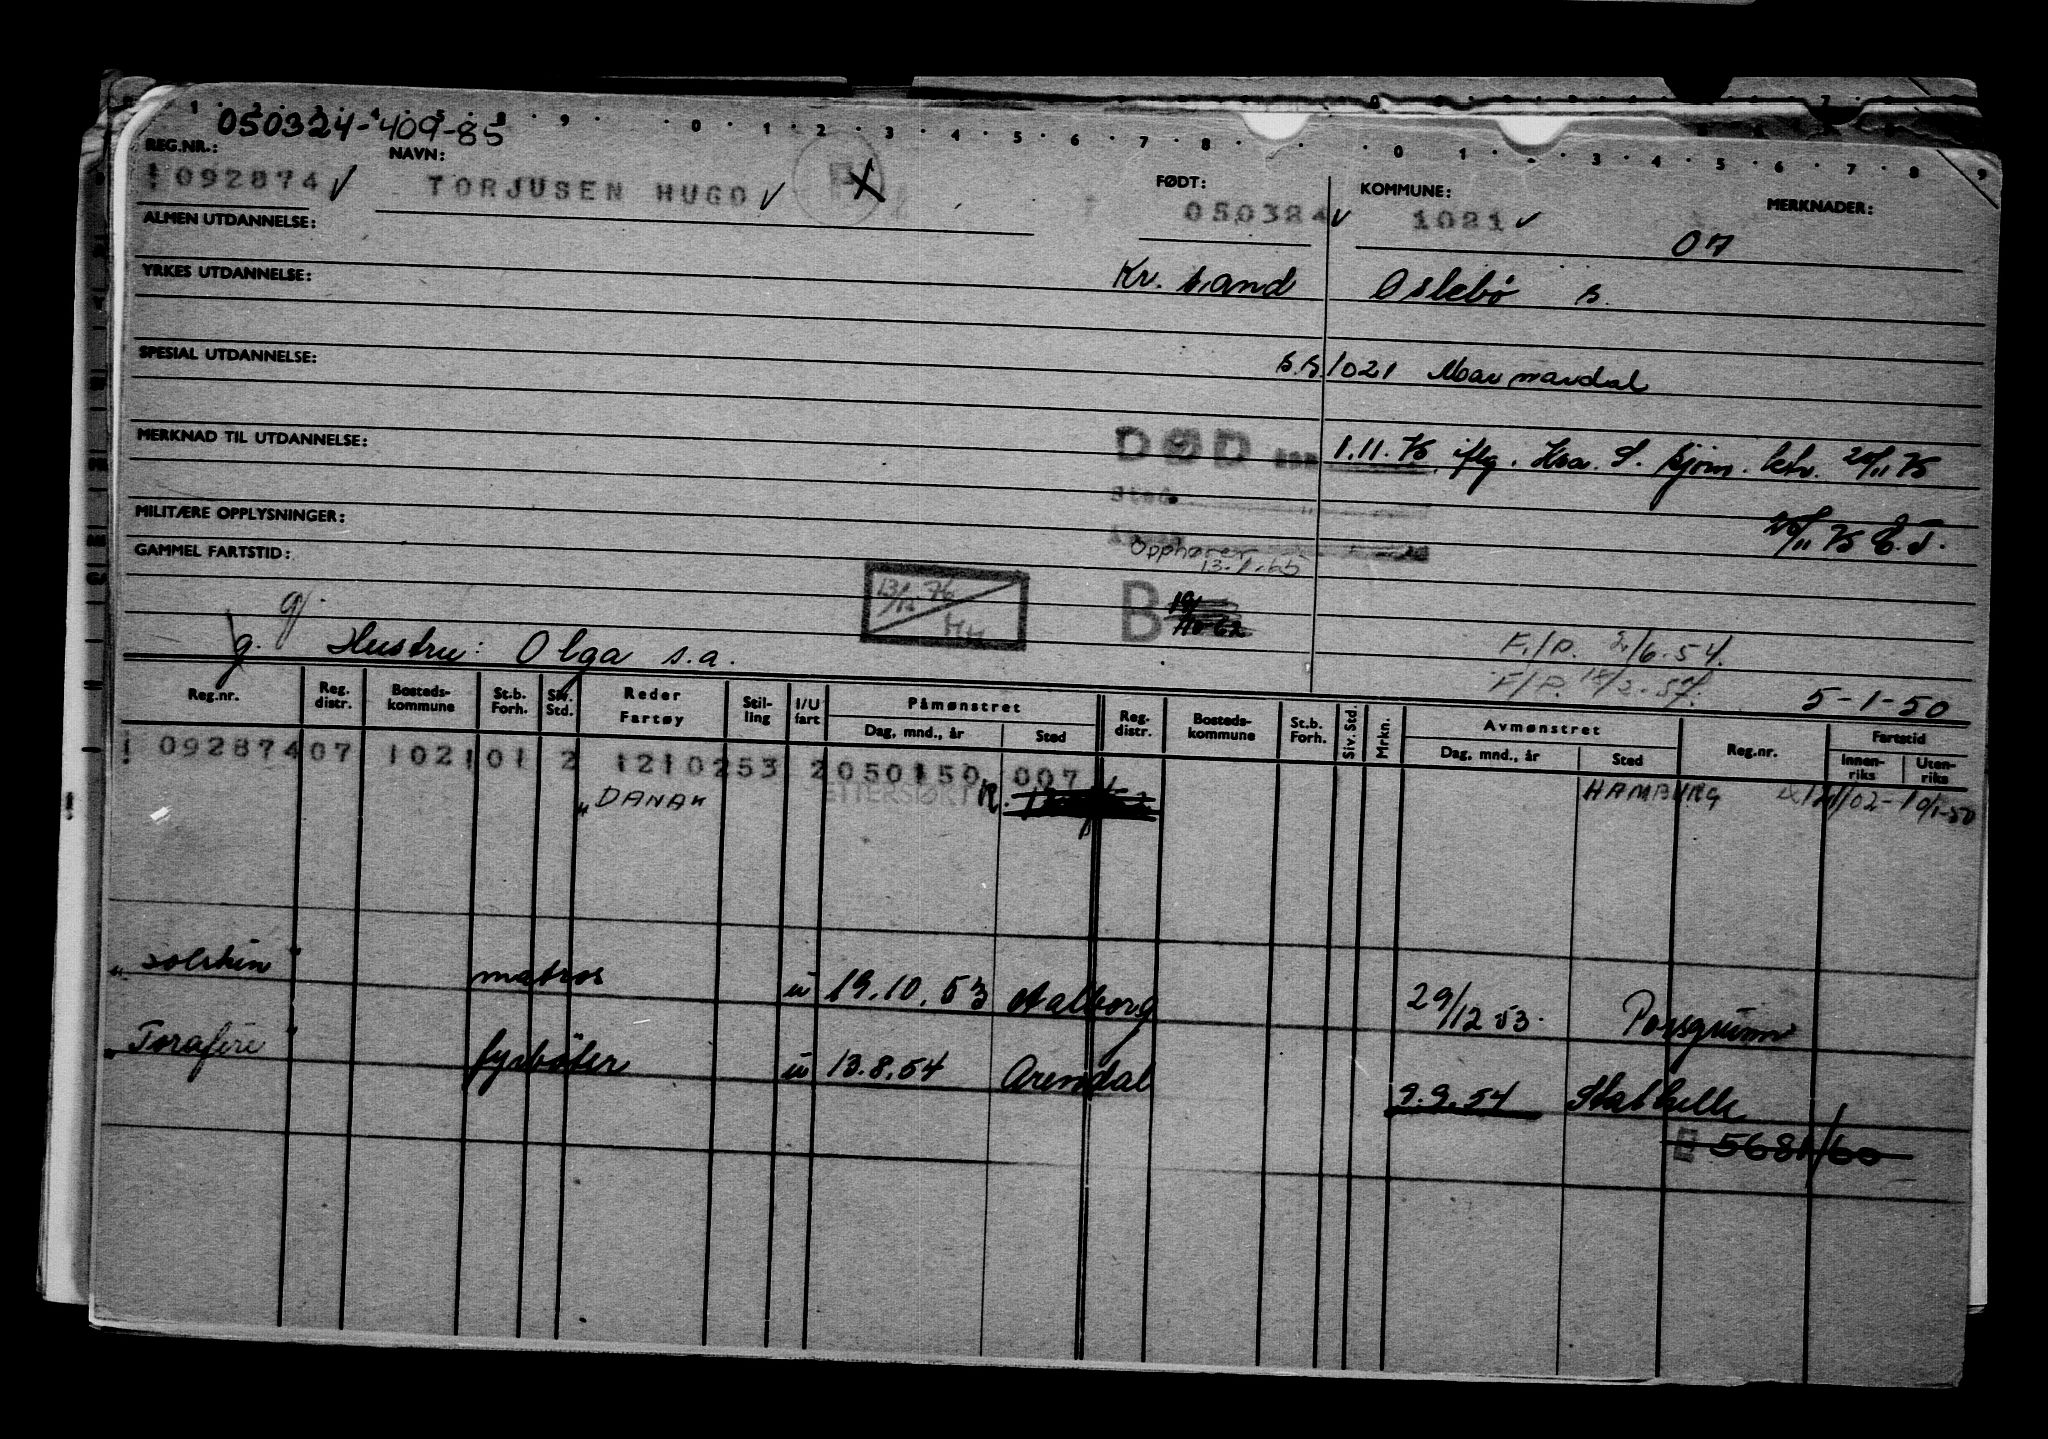 050324-40985
REG.NR.: NAVN: FØDT: KOMMUNE: MERKNADER:
1092874 TORJUSEN HUGO 050324 1021
07
ALMEN UTDANNELSE:
YRKES UTDANNELSE: Kr. sand Øslebø s.
SPESIAL UTDANNELSE: s.s. 1021 Marnardal
MERKNAD TIL UTDANNELSE: DØD den 1.11.75 iflg. S. bjørn. 20/11 75
Sted
MILITÆRE OPPLYSNINGER: 20/11 75 E.T.
GAMMEL FARTSTID: Opphører 13.1.65
13/12 76 HH B
gj.
g. Hustru: Olga s.a. F./P. 2/6.54.
F/P. 18/2.57. 5-1-50
Reg.nr. Reg. distr. Bosteds-kommune St.b. Forh. Siv. Std. Reder Fartøy Stil-ling I/U fart Påmønstret Dag, mnd., år Sted Reg. distr. Bosteds-kommune St.b. Forh. Siv. Std. Mrkn. Avmønstret Dag, mnd., år Sted Reg.nr. Fartstid Innen-riks Uten-riks
! 092874 07 1021 01 2 1210253 2 050150 007
„DANAK ETTERSØKT HAMBURG
„Solskin" matros u 19.10.53 Aalborg 29/12 53. Porsgrunn
„Torafire" fyrbøter u 13.8.54 Arendal 9.9.54 Stathelle
E 5681/60